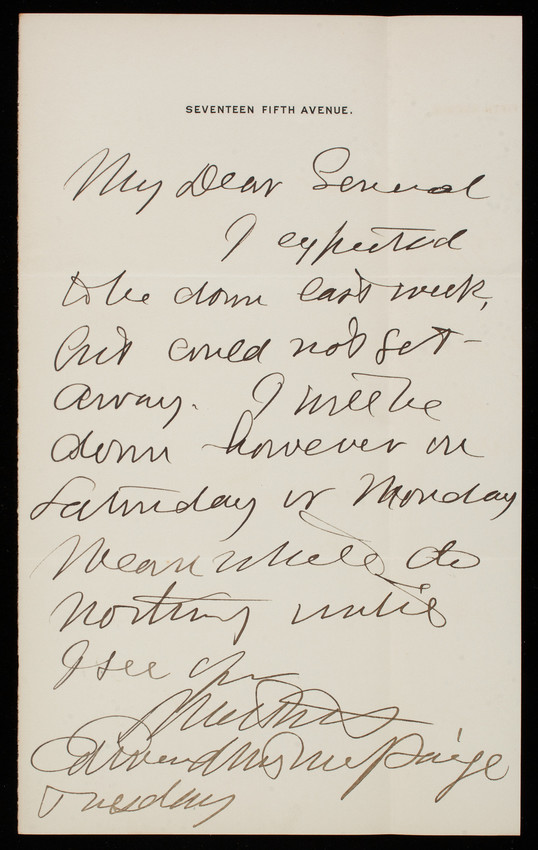 SEVENTEEN FIFTH AVENUE.
My Dear General
I expected
to be down last week,
but could not get
away. I will be
down however on
Saturday or Monday
Meanwhile do
nothing until
I see you
Paige
Tuesday